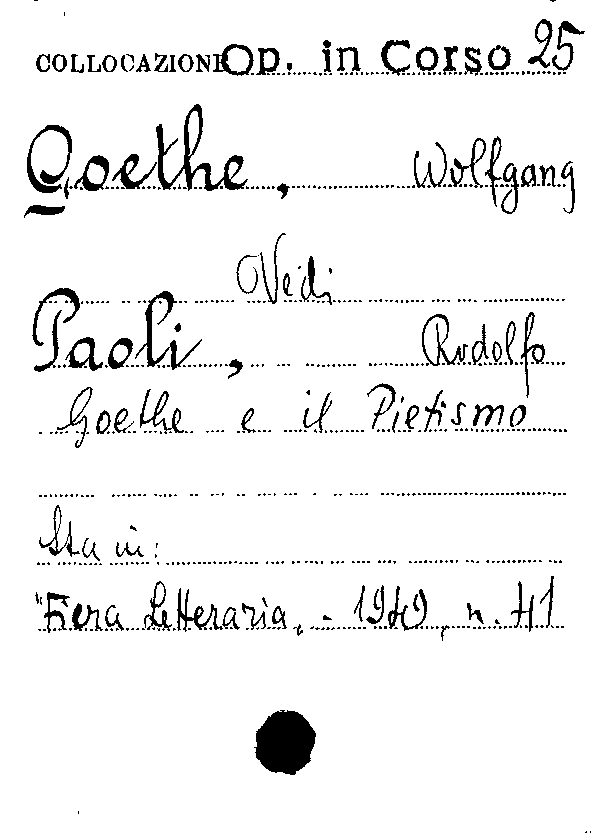 COLLOCAZIONE Op. in Corso 25
Goethe, Wolfgang
Vedi
Paoli, Rodolfo
Goethe e il Pietismo
Sta in:
"Fiera Letteraria, - 1949, n. 41